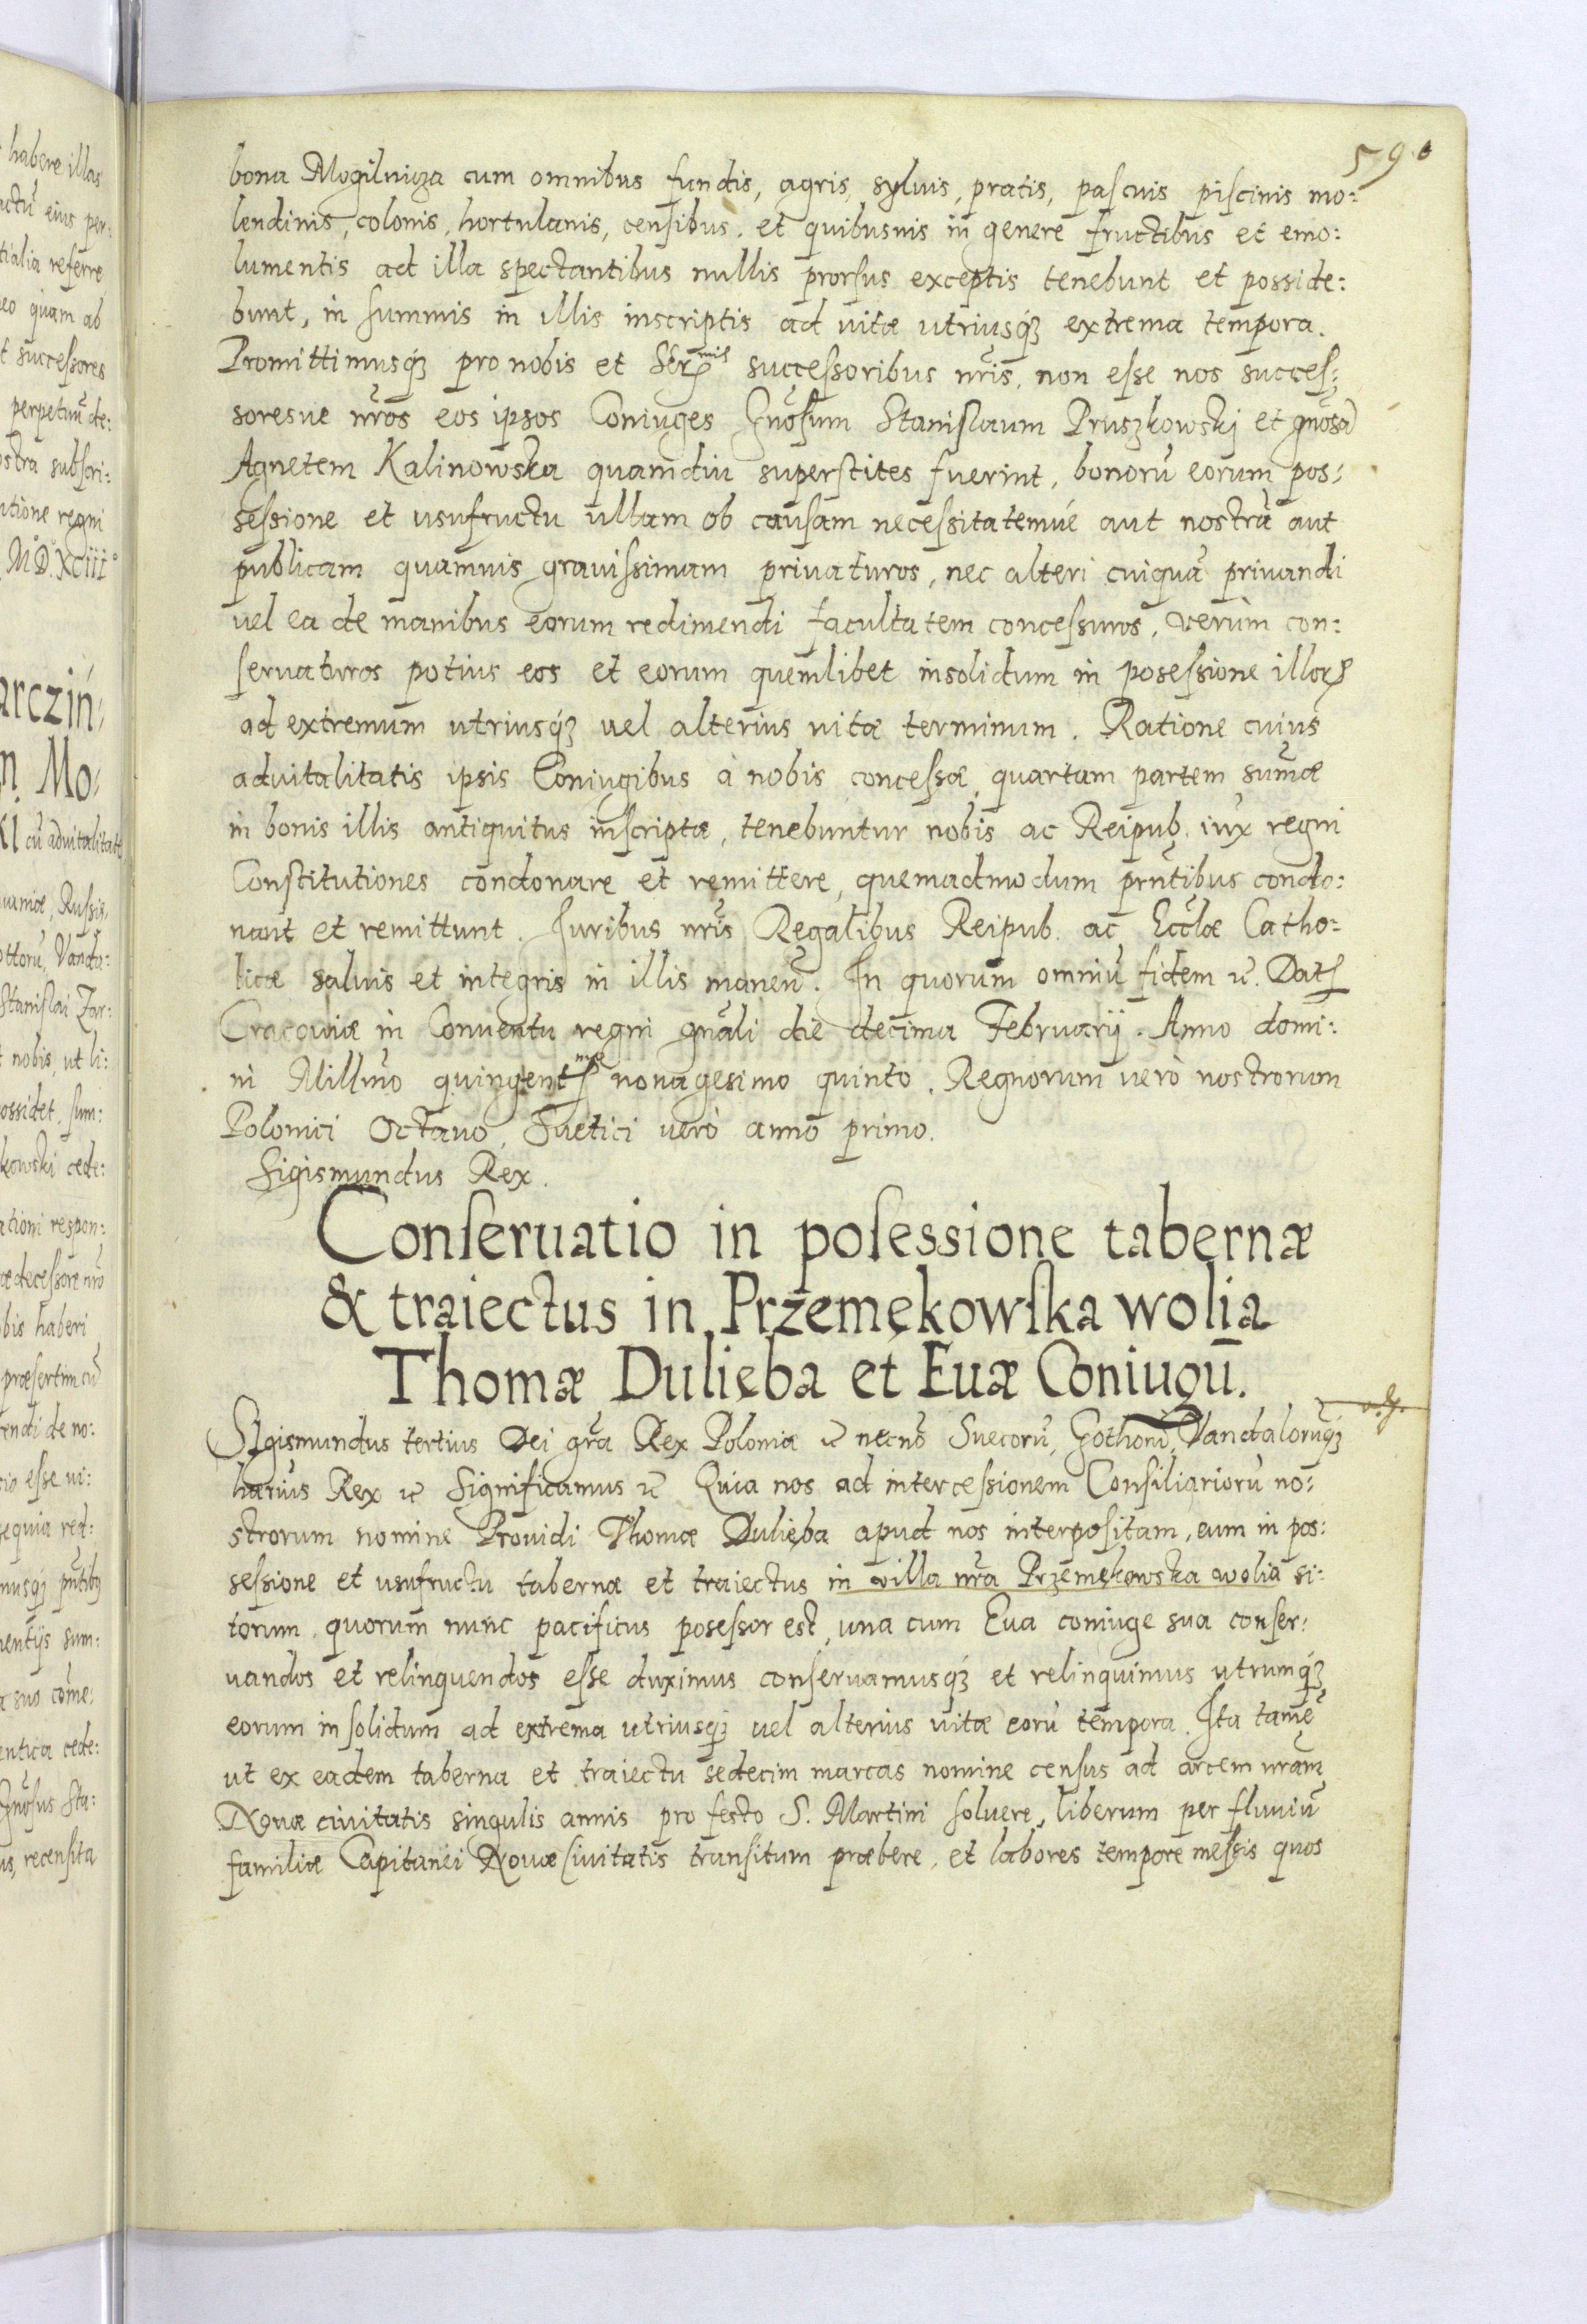 590
bona Mogilnicza cum omnibus fundis, agris, syluis, pratis, pascuis piscinis mo:
lendinis, colonis, hortulanis, censibus. et quibusuis in genere fructibus et emo:
lumentis ad illa spectantibus nullis prorsus exceptis tenebunt et posside:
bunt, in summis in illis inscriptis ad vitæ utriusq́ꝫ extrema tempora.
Promittimusq́ꝫ pro nobis et Ser^mis successoribus nr̃is. non esse nos succes:
soresue nr̃os eos ipsos Coniuges Gnõsum Stanislaum Pruszkowskj et gnõsã
Agnetem Kalinowska quamdiu superstites fuerint, bonorũ eorum pos:
sessione et usufructu ullam ob causam necessitatemúe aut nostrã aut
publicam quamuis grauissimam priuaturos, nec alteri cuiquã priuandi
vel ea de manibus eorum redimendi facultatem concessuros, verùm con:
seruaturos potius eos et eorum quemlibet insolidum in posessione illorꝝ
ad extremum utriusq́ꝫ vel alterius vitæ terminum. Ratione cuius
aduitalitatis ipsis Coniugibus à nobis concessæ, quartam partem sum̃æ
in bonis illis antiquitus inscriptæ, tenebuntur nobis ac Reipub. iux regni
Constitutiones condonare et remittere, quemadmodum prñtibus condo:
nant et remittunt. Juribus nr̃is Regalibus Reipub. ac Eccl̃æ Catho:
licæ saluis et integris in illis maneñ. In quorum omniũ fidem etc. Datꝭ
Cracouiæ in Conuentu regni gnãli die decima Februarij. Anno domi:
ni Millmõ quingentꝭ^mo nonagesimo quinto. Regnorum verò nostrorum
Polonici Octauo, Suetici verò anno primo.
Sigismundus Rex.
Conseruatio in posessione tabernæ
& traiectus in Przemękowska wolia
Thomæ Dulięba et Euæ Coniugũ.
SIgismundus tertius Dei gr̃a Rex Poloniæ etc necnõ Suecorũ, Gothorũ, Vandalorũq́ꝫ
hærius Rex etc Significamus etc Quia nos ad intercessionem Consiliariorũ no:
strorum nomine Prouidi Thomæ Dulięba apud nos interpositam, eum in pos:
sessione et usufructu tabernæ et traiectus in villa nr̃a Przemękowska wolia si:
torum, quorum nunc pacificus posessor est, una cum Eua coniuge sua conser:
uandos et relinquendos esse duximus conseruamusq́ꝫ et relinquimus utrumq́ꝫ
eorum insolidum ad extrema utriusq́ꝫ vel alterius vitæ eorũ tempora. Ita tamẽ
ut ex eadem taberna et traiectu sedecim marcas nomine census ad arcem nr̃am
Nouæ ciuitatis singulis annis pro festo S. Martini soluere, liberum per fluuiũ
familiæ Capitanei Nouæ Ciuitatis transitum præbere, et labores tempore messis quos